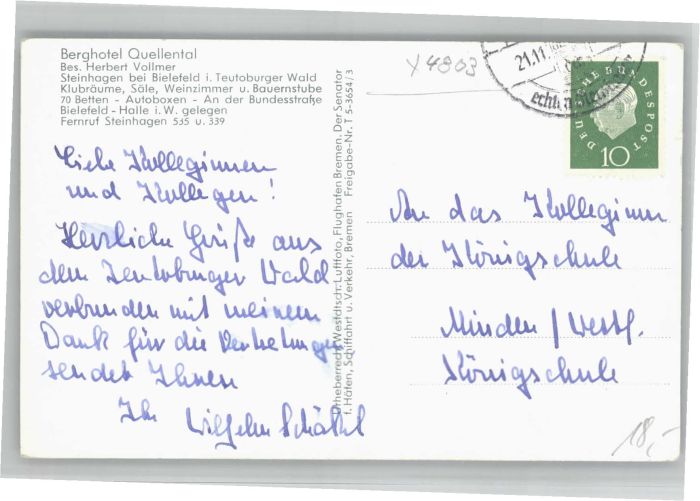 Berghotel Quellental
Bes. Herbert Vollmer
Steinhagen bei Bielefeld i. Teutoburger Wald
Klubräume, Säle, Weinzimmer u. Bauernstube
70 Betten - Autoboxen - An der Bundesstraße
Bielefeld - Halle i.W. gelegen
Fernruf Steinhagen 535 u. 339
Liebe Kolleginnen
und Kollegen!
Herzliche Grüße aus
dem Teutoburger Wald
verbunden mit meinem
Dank für die Vertretungen
sendet Ihnen
Ihr Wilhelm
Urheberred. Westdtsch. Luftfoto, Flughafen Bremen. Der Senator
f. Häfen, Schiffahrt u. Verkehr, Bremen Freigabe-Nr. T 5-3654/3
Y4803
21.11
DEUTSCHE BUNDESPOST
10
An das Kollegium
der Königschule
Minden / Westf.
Königschule
18,-